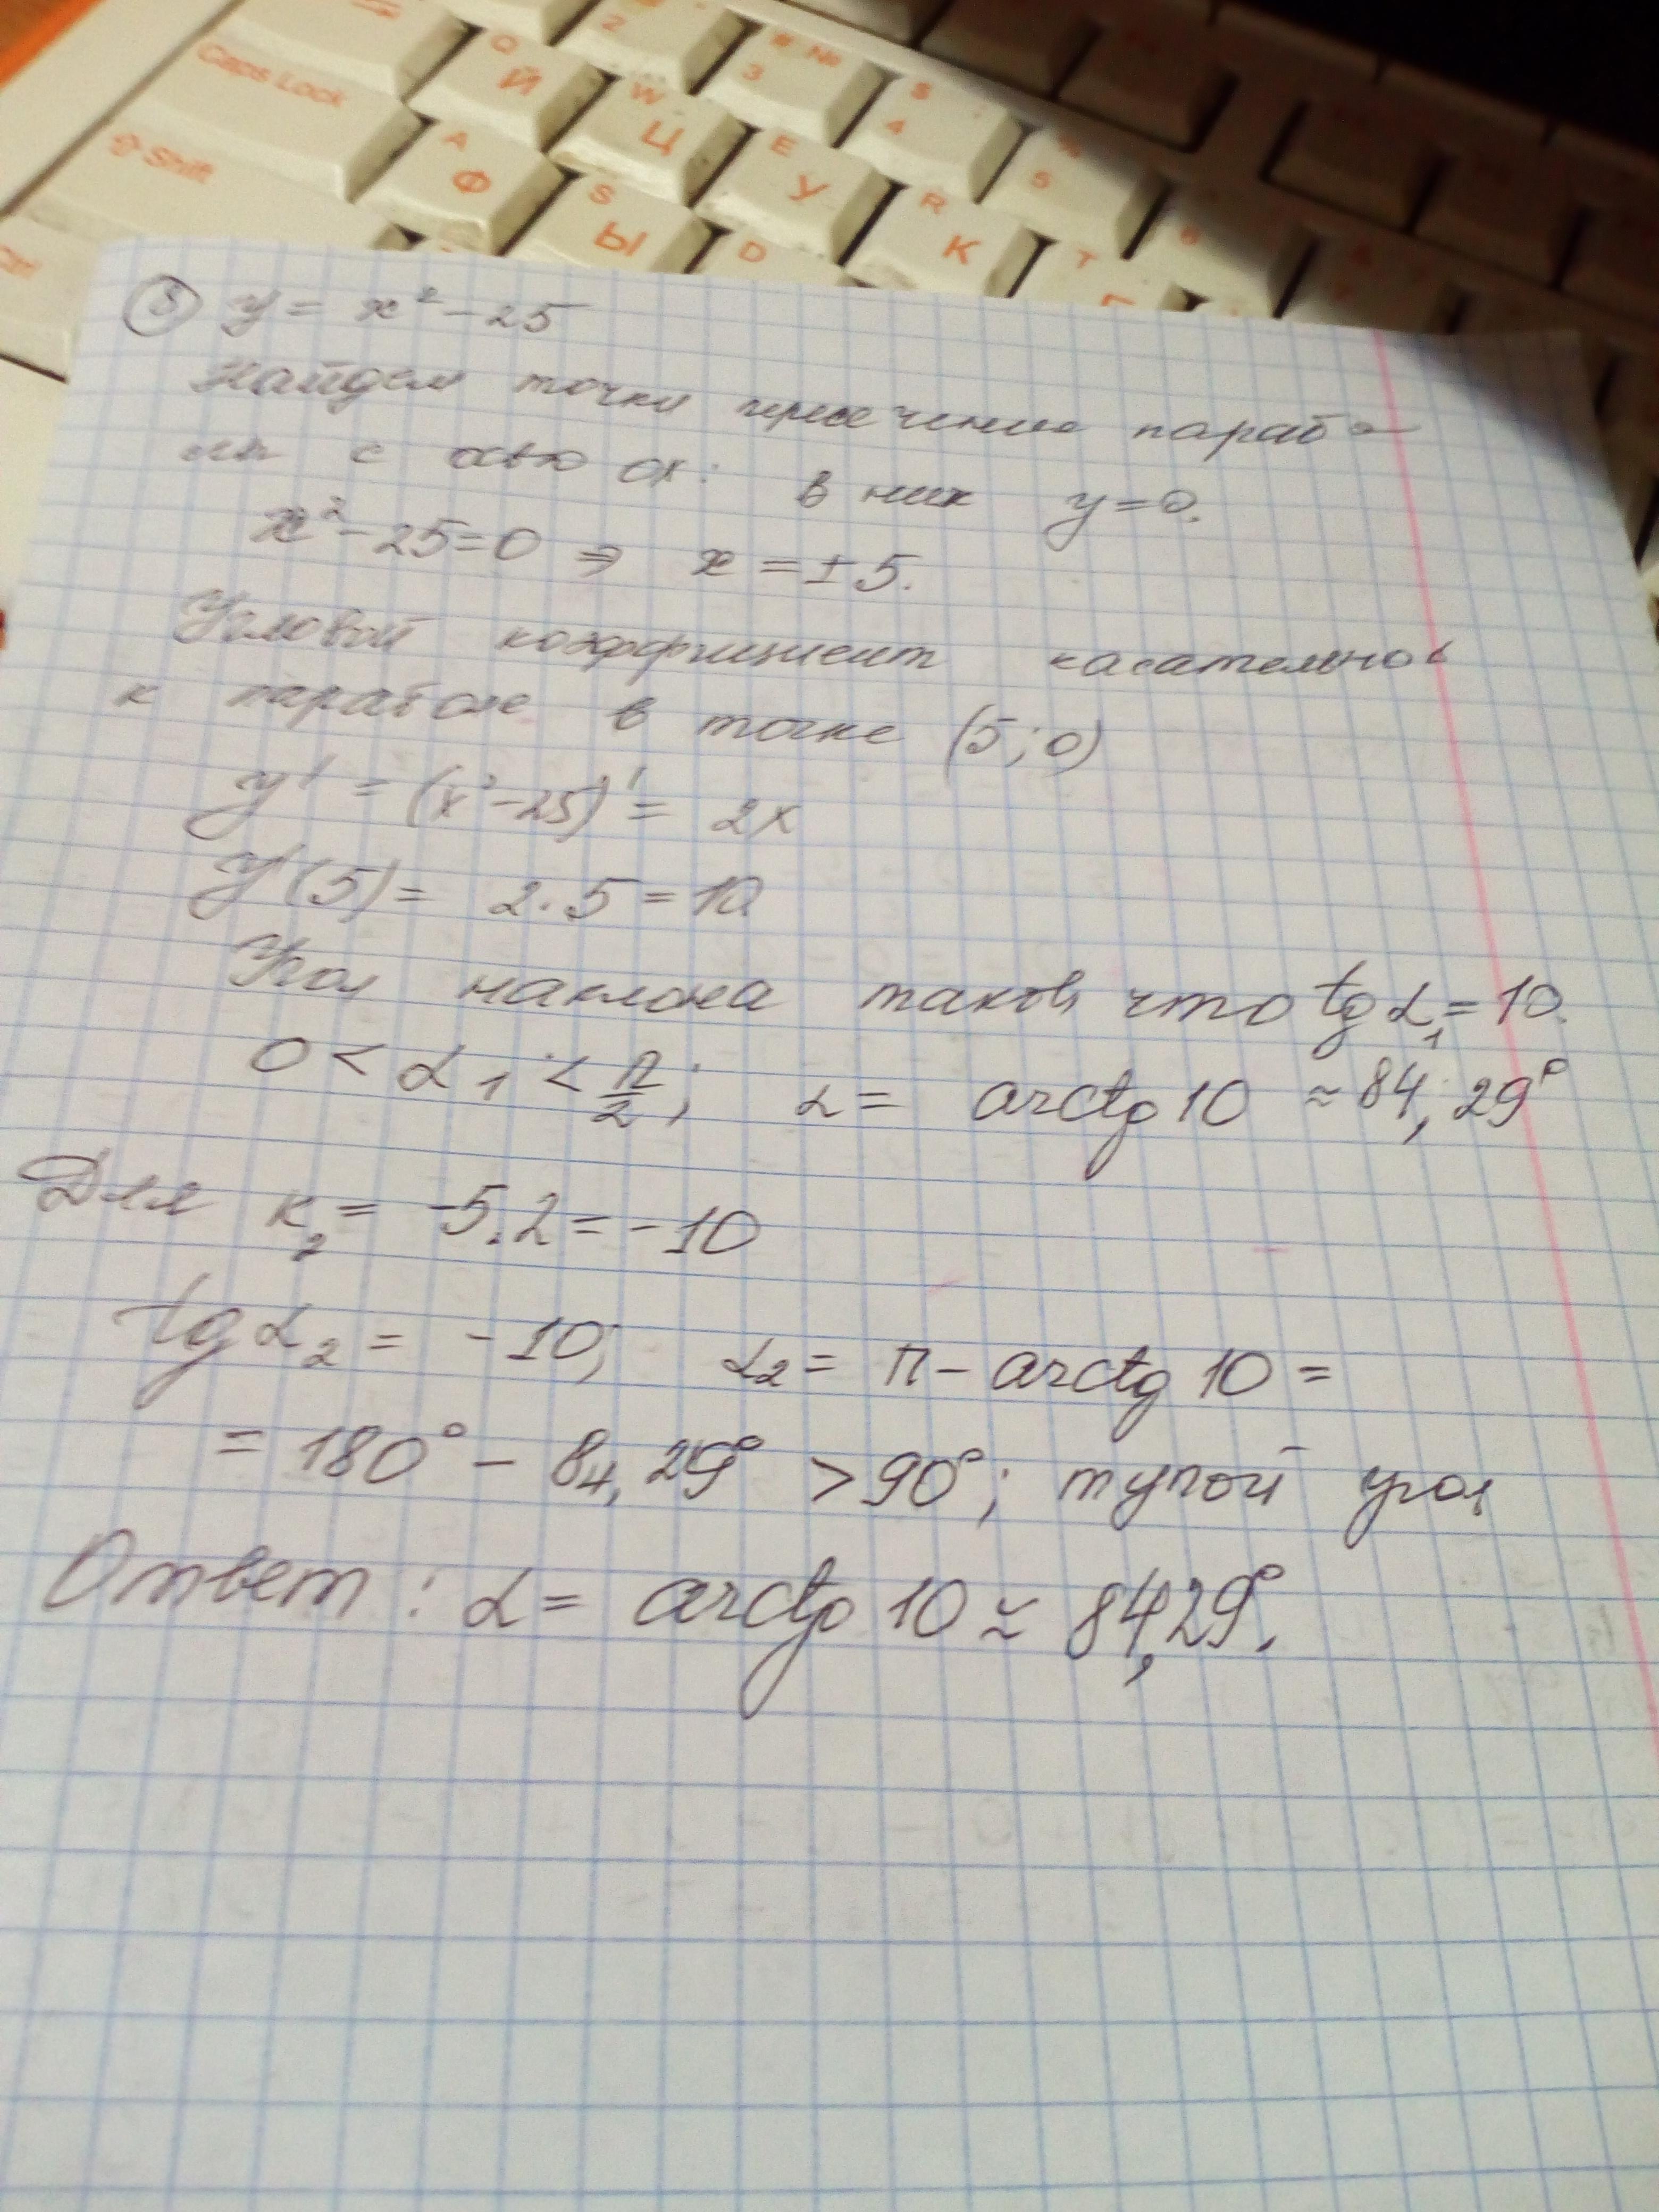 2
# №
3
$
4
%
5
6
Q
Й
W
Ц
E
У
R
К
T
Caps Lock
A
Ф
S
Ы
D
⇧ Shift
Ctrl
5 y = x² - 25
Найдем точки пересечение парабо
лы с осью ох: в них y=0.
x² - 25=0 ⇒ x = ± 5.
Угловой коэффициент касательной
к параболе в точке (5; 0)
y' = (x² - 25)' = 2x
y'(5) = 2·5 = 10
Угол наклона таков, что tg α₁ = 10.
0 < α₁ < π/2; α = arctg 10 ≈ 84, 29°
Для к₂ = -5·2 = -10
tg α₂ = -10; α₂ = π - arctg 10 =
= 180° - 84, 29° > 90°; тупой угол
Ответ: α = arctg 10 ≈ 84,29°.